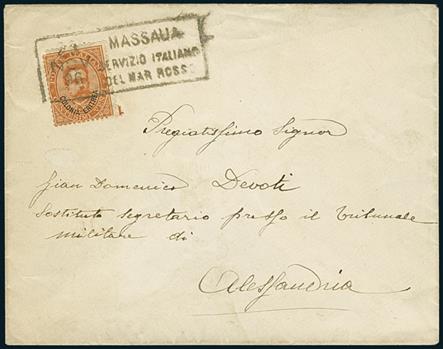 MASSAUA
SERVIZIO ITALIANO
DEL MAR ROSSO
96
COLONIA ERITREA
1
Pregiatissimo Signor
Gian Domenico Devoti
Sostituto segretario presso il Tribunale
militare di
Alessandria